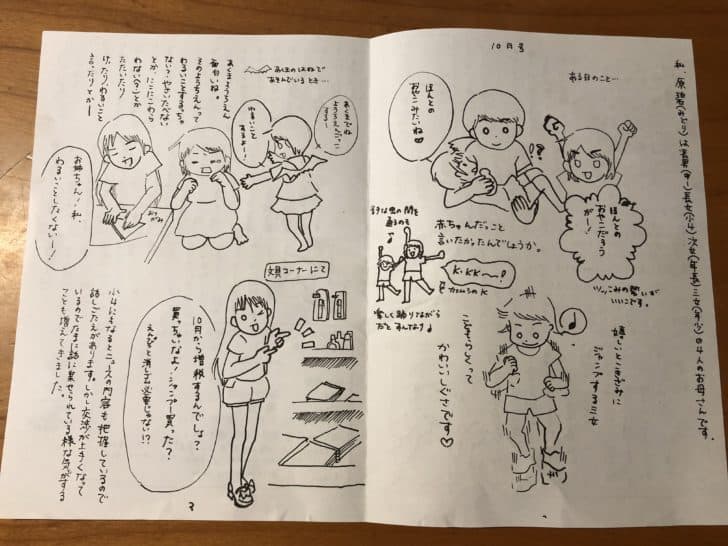 10月号
私、原碧(みどり)は
長女(小4)次女(年長)三女(年少)の4人のお母さんです。
ある日のこと…
ほんとの
おやこみたいね♡
!?
ほんとの
おやこだろう
がー!
ツッこみの勢いが
いいこです。
赤ちゃんだっこと
言いたかったんでしょうか。
K・KK〜♪
カエルのK
楽しく踊りながら
だと すんなり♪
嬉しいとこきざみに
ジャンプする三女
こちらにとって
かわいいしぐさです♡
あくまのはねで
あそんでいるとき…
あくまでね
ようちえんごっこ
する〜
わるいこと
あるよー!
あくまようちえん
面白いね。
そのようちえんって
わるいことするっちゃ
ない?やさいたべない
とか、にこにこわら
わない(?)とか
たたいたり
けったり/わるいこと
言ったりとかー
お姉ちゃん!私、
わるいことしたくないー!
文具コーナーにて
10月から増税するんでしょ?
買っちゃいなよ!シャンプー買った?
えんぴつと消しゴム必要じゃない!?
小4にもなるとニュースの内容も把握しているので
話しごたえがあります。しかし交渉が上手くなって
いるのでたまに話に乗せられている様な気がする
ことも増えてきました。
3